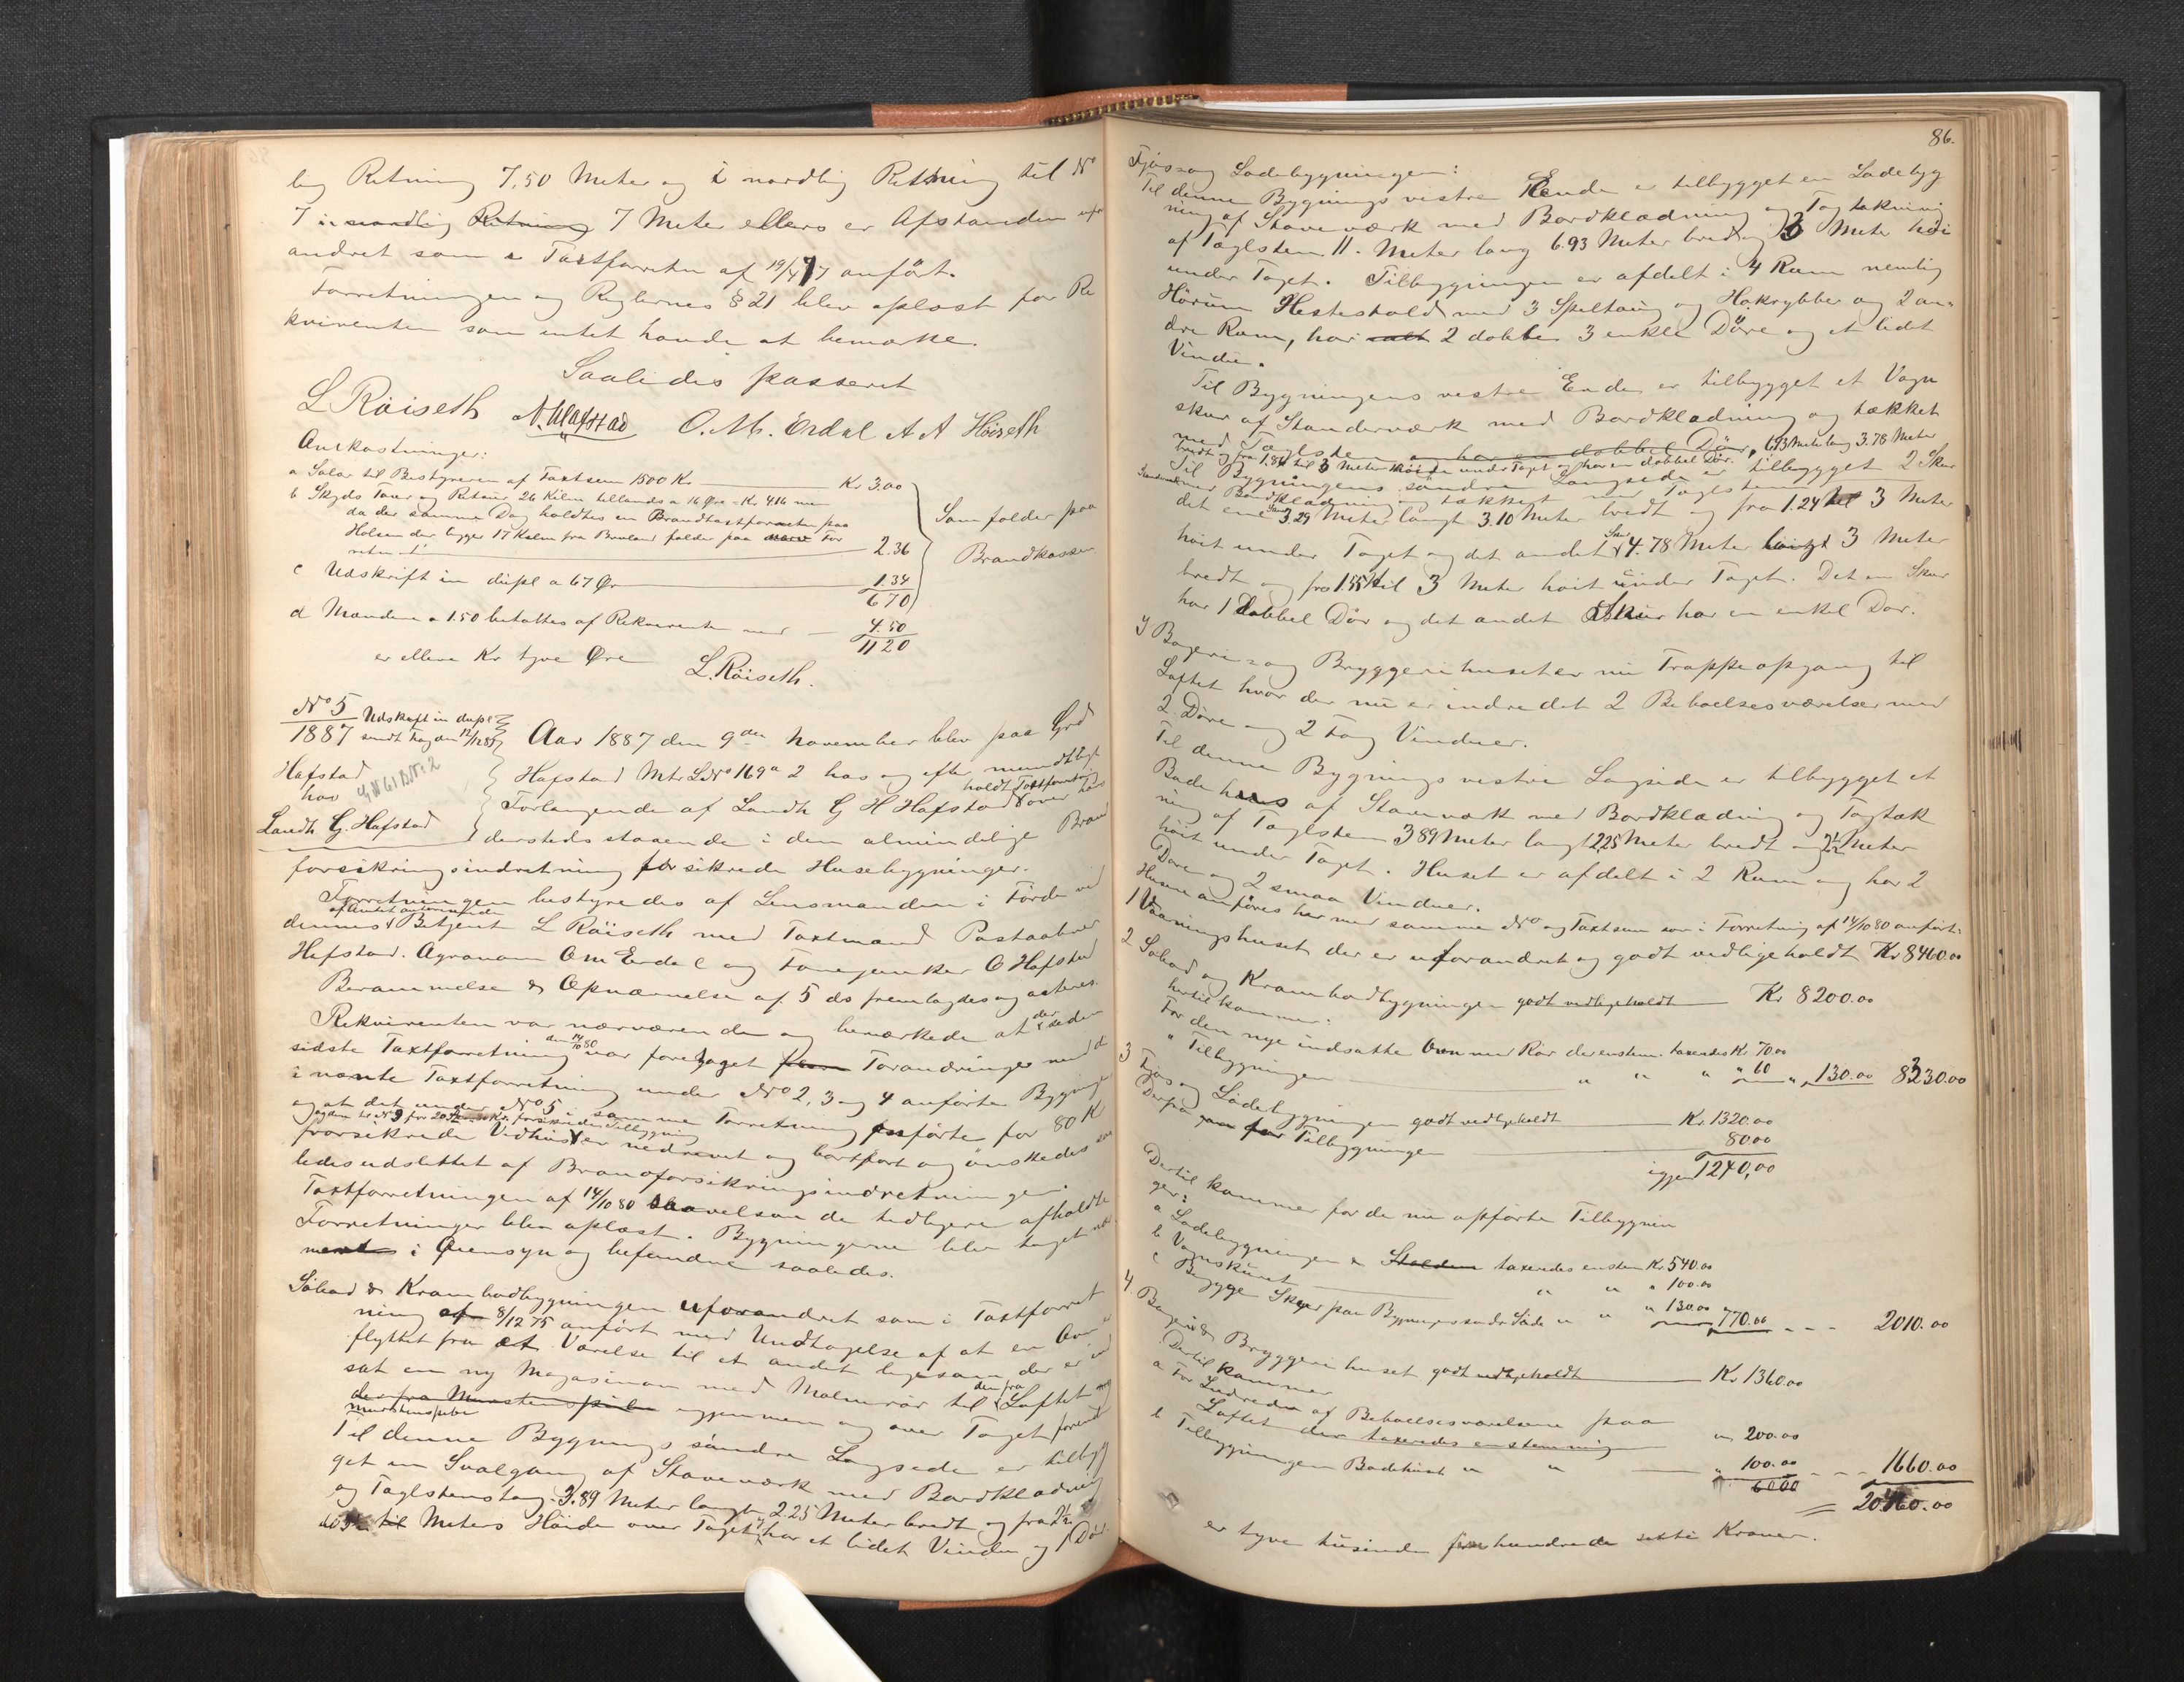 lig Retning 7,50 Meter og i nordlig Retning til No
7 i nordlig Retning 7 Meter ellers er Afstanden ufor
andret som i Taxtforretn af 19/4 77 anført.
Forretningen og Reglernes § 21 blev oplæst for Re
kvirenten som intet havde at bemærke.
Saaledes passeret
L Röiseth N. Hafstad O. M. Erdal A A Höiseth
Omkostninger:
a Salær til Bestyreren af Taxtsum 1500 Kr Kr 3.00
b Skyds Tour og Retour 26 Kilm tillands a 16 Øre = Kr. 416 men
da der samme Dag holdtes en Brandtaxtforretn paa
Holsen der ligger 17 Kilm fra falder paa denne For
retn 2.36
c Udskrift in dupl a 67 Ør 1.34
6 70
Som falder paa
Brandkassen
d Mændene a 1.50 betaltes af Rekvirenten med 4.50
11 20
er elleve Kr tyve Øre L. Röiseth.
No 5
1887
Udskrift in dupl
sendt Fogden 12/12 87
Hafstad
hos
G No 61 B No 2
Landh. G. Hafstad
Aar 1887 den 9de November blev paa Grd
Hafstad Mtr LNo 169a 2 hos og efter mundtligt
Forlangende af Landh G H Hafstad holdt Taxtforretning over hans
dersteds staaende i den almindelige Brand
forsikringsindretning forsikrede Husebygninger.
Forretningen bestyredes af Lensmanden i Förde ved
dennes af Amtet antagne Betjent L Röiseth med Taxtmænd Postaabner
Hafstad. Agronom O M Erdal og Fanejunker O Hafstad
Berammelse & Opnævnelse af 5 ds fremlagdes og acteres.
Rekvirenten var nærværende og bemærkede at der siden
sidste Taxtforretning den 14/10 80 var foretaget Forandringer ved de
i nævnte Taxtforretning under No 2, 3 og 4 anförte Bygninger
og at det under No 5 i samme Forretning anförte for 80 Kr
forsikrede Vedhus er nedrevet og bortfört og önskedes saa
ledes udslettet af Brandforsikringsindretningen.
Taxtforretningen af 14/10 80 saavelsom de tidligere afholdte
Forretninger blev oplæst. Bygningerne blev taget nær
mere i Øiensyn og befandtes saaledes.
Söbod & Krambodbygningen uforandret som i Taxtforret
ning af 8/12 75 anfört med Undtagelse af at en Ovn er
flyttet fra et Værelse til et andet ligesom der er ind
sat en ny Magasinovn med Malmrör til Loftet og
der fra Murstenspibe igjennem og over Taget
Murstenspibe
Til denne Bygnings söndre Langside er tilbyg
get en Svalgang af Stavværk med Bordklædning
og Taglstenstag. 3.89 Meter langt 2.25 Meter bredt og fra 2½
til Meters Höide over Taget har et lidet Vindu og 1 Dör.
86.
Fjös- og Ladebygningen:
Til denne Bygnings vestre Ende er tilbygget en Ladebyg
ning af Stavværk med Bordklædning og Tagtækning
af Taglsten 11. Meter lang 6.93 Meter bred og 3 Meter höi
under Taget. Tilbygningen er afdelt i 4 Rum nemlig
Hörum Hestestald med 3 Spiltoug og Høkrybber og 2 an=
dre Rum, har 2 doble 3 enkle Döre og et lidet
Vindu.
Til Bygningens vestre Ende er tilbygget et Vogn
skur af Standerværk med Bordklædning og tækket
med Taglsten og har en dobbel Dör, 6.93 Meter lang 3.78 Meter
bredt og fra 1.84 til 3 Meter höide under Taget og har en dobbel Dör.
Til Bygningens söndre Langside er tilbygget 2 Skur
med Bordklædning og tækket med Taglsten
det ene Skur 3.29 Meter langt 3.10 Meter bredt og fra 1.24 til 3 Meter
höit under Taget og det andet Skur 4.78 Meter langt 3 Meter
bredt og fra 1.55 til 3 Meter höit under Taget. Det ene Skur
har 1 dobbel Dör og det andet Skur har en enkel Dör.
4 Bageri- og Bryggerihuset er nu Trappeopgang til
Loftet hvor der nu er indredet 2 Beboelsesværelser med
2 Döre og 2 Fag Vinduer.
Til denne Bygnings vestre Langside er tilbygget et
Badehuus af Stavværk med Bordklædning og Tagtæk
ning af Taglsten 3 89 Meter langt 2.25 Meter bredt og 2½ Meter
höit under Taget. Huset er afdelt i 2 Rum og har 2
Döre og 2 smaa Vinduer.
Husene anföres her med samme No og Taxtsum som i Forretning af 14/10 80 anfört:
1 Vaaningshuset der er uforandret og godt vedligeholdt Kr 8460.00
2 Söbod og Krambodbygningen godt vedligeholdt Kr 8200.00
hertil kommer:
For den nye indsatte Ovn med Rör der enstem. taxeredes Kr. 70.00
" Tilbygningen " " " " 60 " 130.00 8330.00
3 Fjös og Ladebygningen godt vedligeholdt Kr. 1320.00
Derfra for Tilbygningen 80.00
igjen 1240,00
Dertil kommer for de nu opförte Tilbygnin
ger:
a Ladebygningen & Stalden taxeredes enstem Kr. 540.00
b Vognskuret " " " 100.00
c Begge Skur paa Bygningens söndre Side " " " 130.00 770.00 2010.00
4 Bageri & Bryggerihuset godt vedligeholdt Kr 1360.00
Dertil kommer
a For Indreden af Beboelsesværelserne paa
Loftet der taxeredes enstemmig " 200.00
b Tilbygningen Badehuset " " " 100.00 1660.00
= 20460.00
er tyve tusinde fire hundrede sexti Kroner.